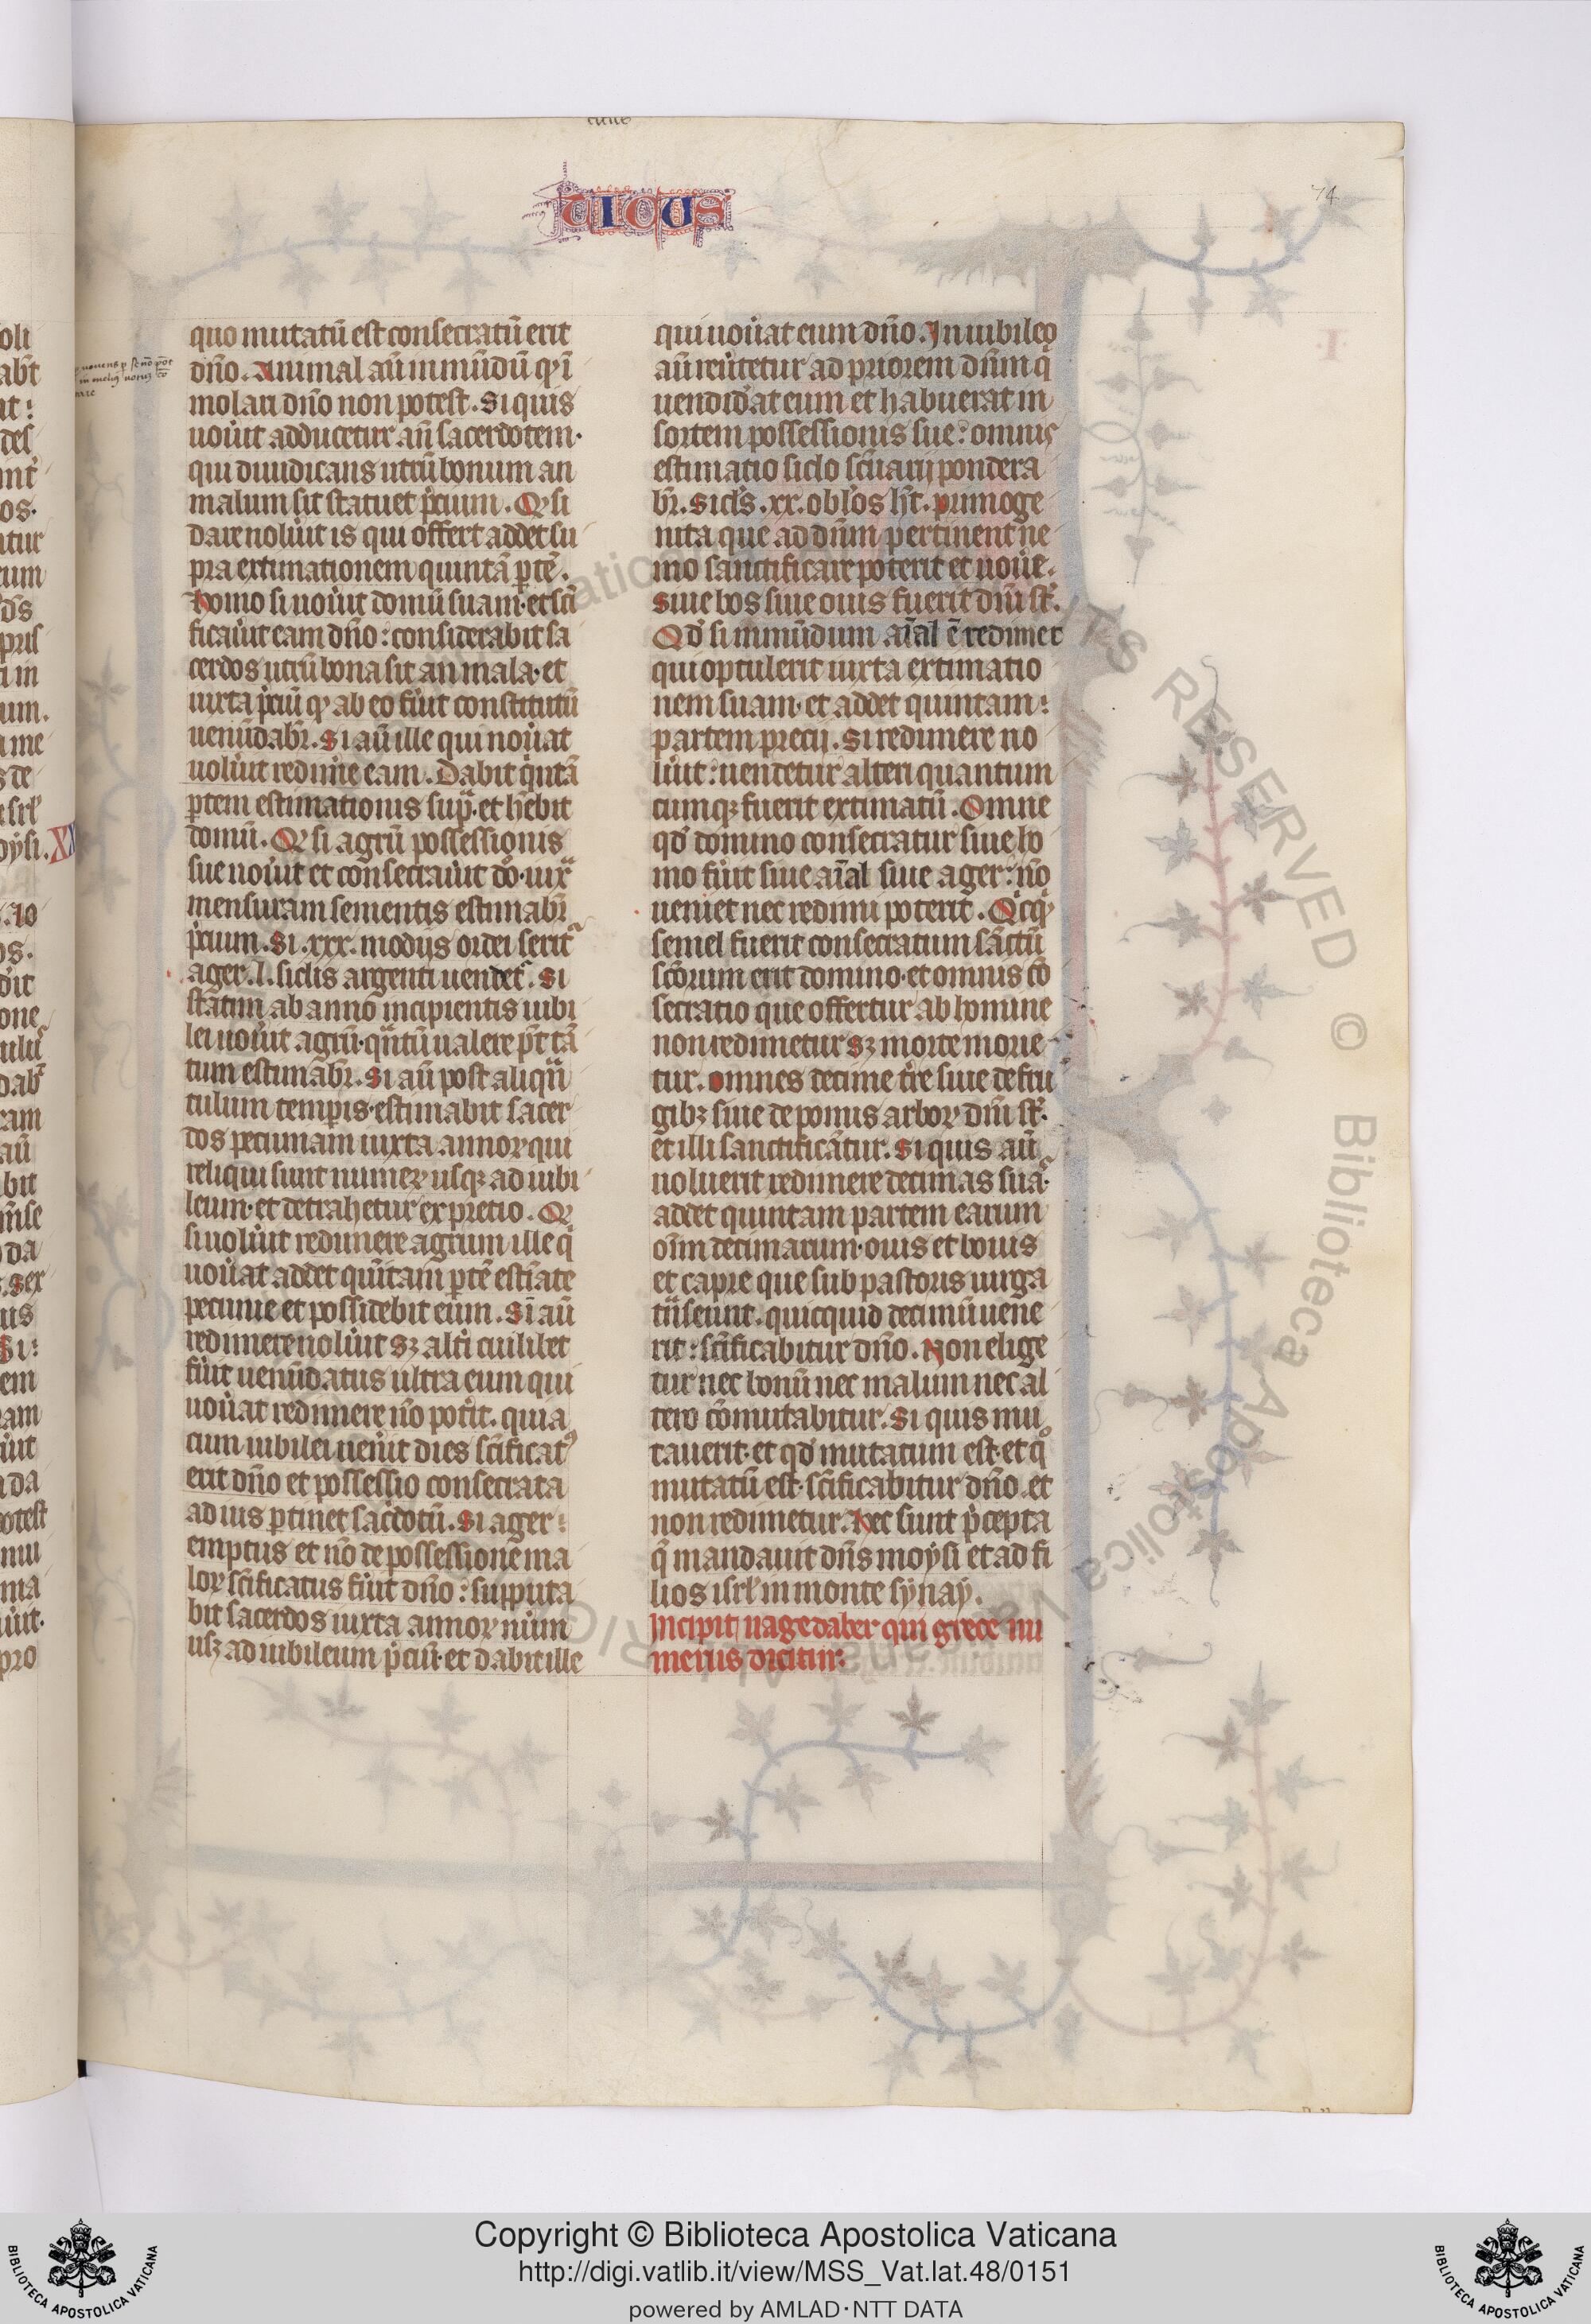 ticus
74
quo mutatū est consecratū erit
dño. Animal aū inmūdū qd̾ ī
molari dño non potest. Si quis
uoūit adducetur añ sacerdotem.
qui diiudicans utrū bonum an
malum sit statuet p̃cium. Qd̾ si
dare noluīt is qui offert addet su
pra extimationem quintā ꝑtē.
Homo si uoūit domū suam. et scī
ficaūit eam dño: considerabit sa
cerdos utrū bona sit an mala. et
iuxta p̃ciū qd̾ ab eo fūit constitutū
uenūdabr̄. Si aū ille qui uoūat
uolūit redim̃e eam. Dabit q̃ntā
ꝑtem estimationis sup̃. et hēbit
domū. Qd̾ si agrū possessionis
sue uoūit et consecraūit dõ. iuxᵃ
mensuram sementis estimabr̄
p̃cium. Si .xxx. modijs ordei serit᷑
ager .l. siclis argenti uendet᷑. Si
statim ab anno incipientis iubi
lei uoūit agrū. qᵃntū ualere p̃t tā
tum estimabr̄. Si aū post aliqᵃn
tulum temꝑis. estimabit sacer
dos pecuniam iuxta annoꝝ qui
reliqui sunt numeꝝ usqꝫ ad iubi
leum. et detrahetur ex pretio. Qd̾
si uolūit redimere agrum ille qͥ
uoūat addet quītam ꝑtē estīate
pecunie et possidebit eum. Sī aū
redimere noluīt sꝫ alt̄i cuilibet
fūit uenūdatus ultra eum qui
uoūat redimere nō pot̄it. quia
cum iubilei ueñit dies scīficatꝰ
erit dño et possessio consecrata
ad ius ꝑtinet sac̃dotū. Si ager
emptus et nō de possessione ma
ioꝝ scīficatus fūit dño: supputa
bit sacerdos iuxta annoꝝ nūm
usꝫ ad iubileum p̃ciū. et dabit ille
qui uoūat eum dño. In iubileo
aū reūtetur ad priorem dñm qͥ
uendid̾at eum et habuerat in
sortem possessionis sue: omnis
estimatio siclo scūarij pondera
br̄. Sicls̃ .xx. obl̃os ht̄. Primoge
nita que ad dñm pertinent ne
mo sanctificare poterit et uoūe.
Siue bos siue ouis fuerit dñi st̄.
Qd̾ si inmūdum aīal ē redimet
qui optulerit iuxta extimatio
nem suam. et addet quintam
partem precij. Si redimere no
lūit: uendetur alteri quantum
cumqꝫ fuerit extimatū. Omne
qd̾ domino consecratur siue ho
mo fūit siue aīal siue ager: nō
ueniet nec redimi poterit. Qͥcqͥd
semel fuerit consecratum sāctū
scōrum erit domino. et omnis cō
secratio que offertur ab homine
non redimetur sꝫ morte morie
tur. Omnes decime t̄re siue de fru
gibꝫ siue de pomis arboꝝ dñi st̄.
et illi sanctificātur. Si quis aū
uoluerit redimere decimas suas.
addet quintam partem earum
oīm decimarum. ouis et bouis
et capre que sub pastoris uirga
tᵃnseunt. quicquid decimū uene
rit: scīficabitur dño. Non elige
tur nec bonū nec malum nec al
tero cōmutabitur. Si quis mu
tauerit. et qd̾ mutatum est. et qᵒ
mutatū est. scīficabitur dño. et
non redimetur. Hec sunt p̃cepta
q̄ mandauit dñs moysi et ad fi
lios isrl̃ in monte synay.
Incipit uagedaber qui grece nu
merus dicitur.
Copyright © Biblioteca Apostolica Vaticana
http://digi.vatlib.it/view/MSS_Vat.lat.48/0151
powered by AMLAD·NTT DATA
BIBLIOTECA APOSTOLICA VATICANA
BIBLIOTECA APOSTOLICA VATICANA